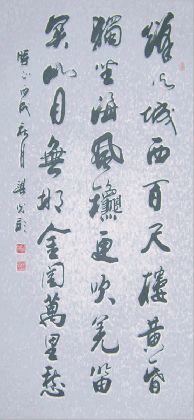 烽火城西百尺樓黄昏
獨坐海風龝更吹羌笛
关山月無那金閨萬里愁